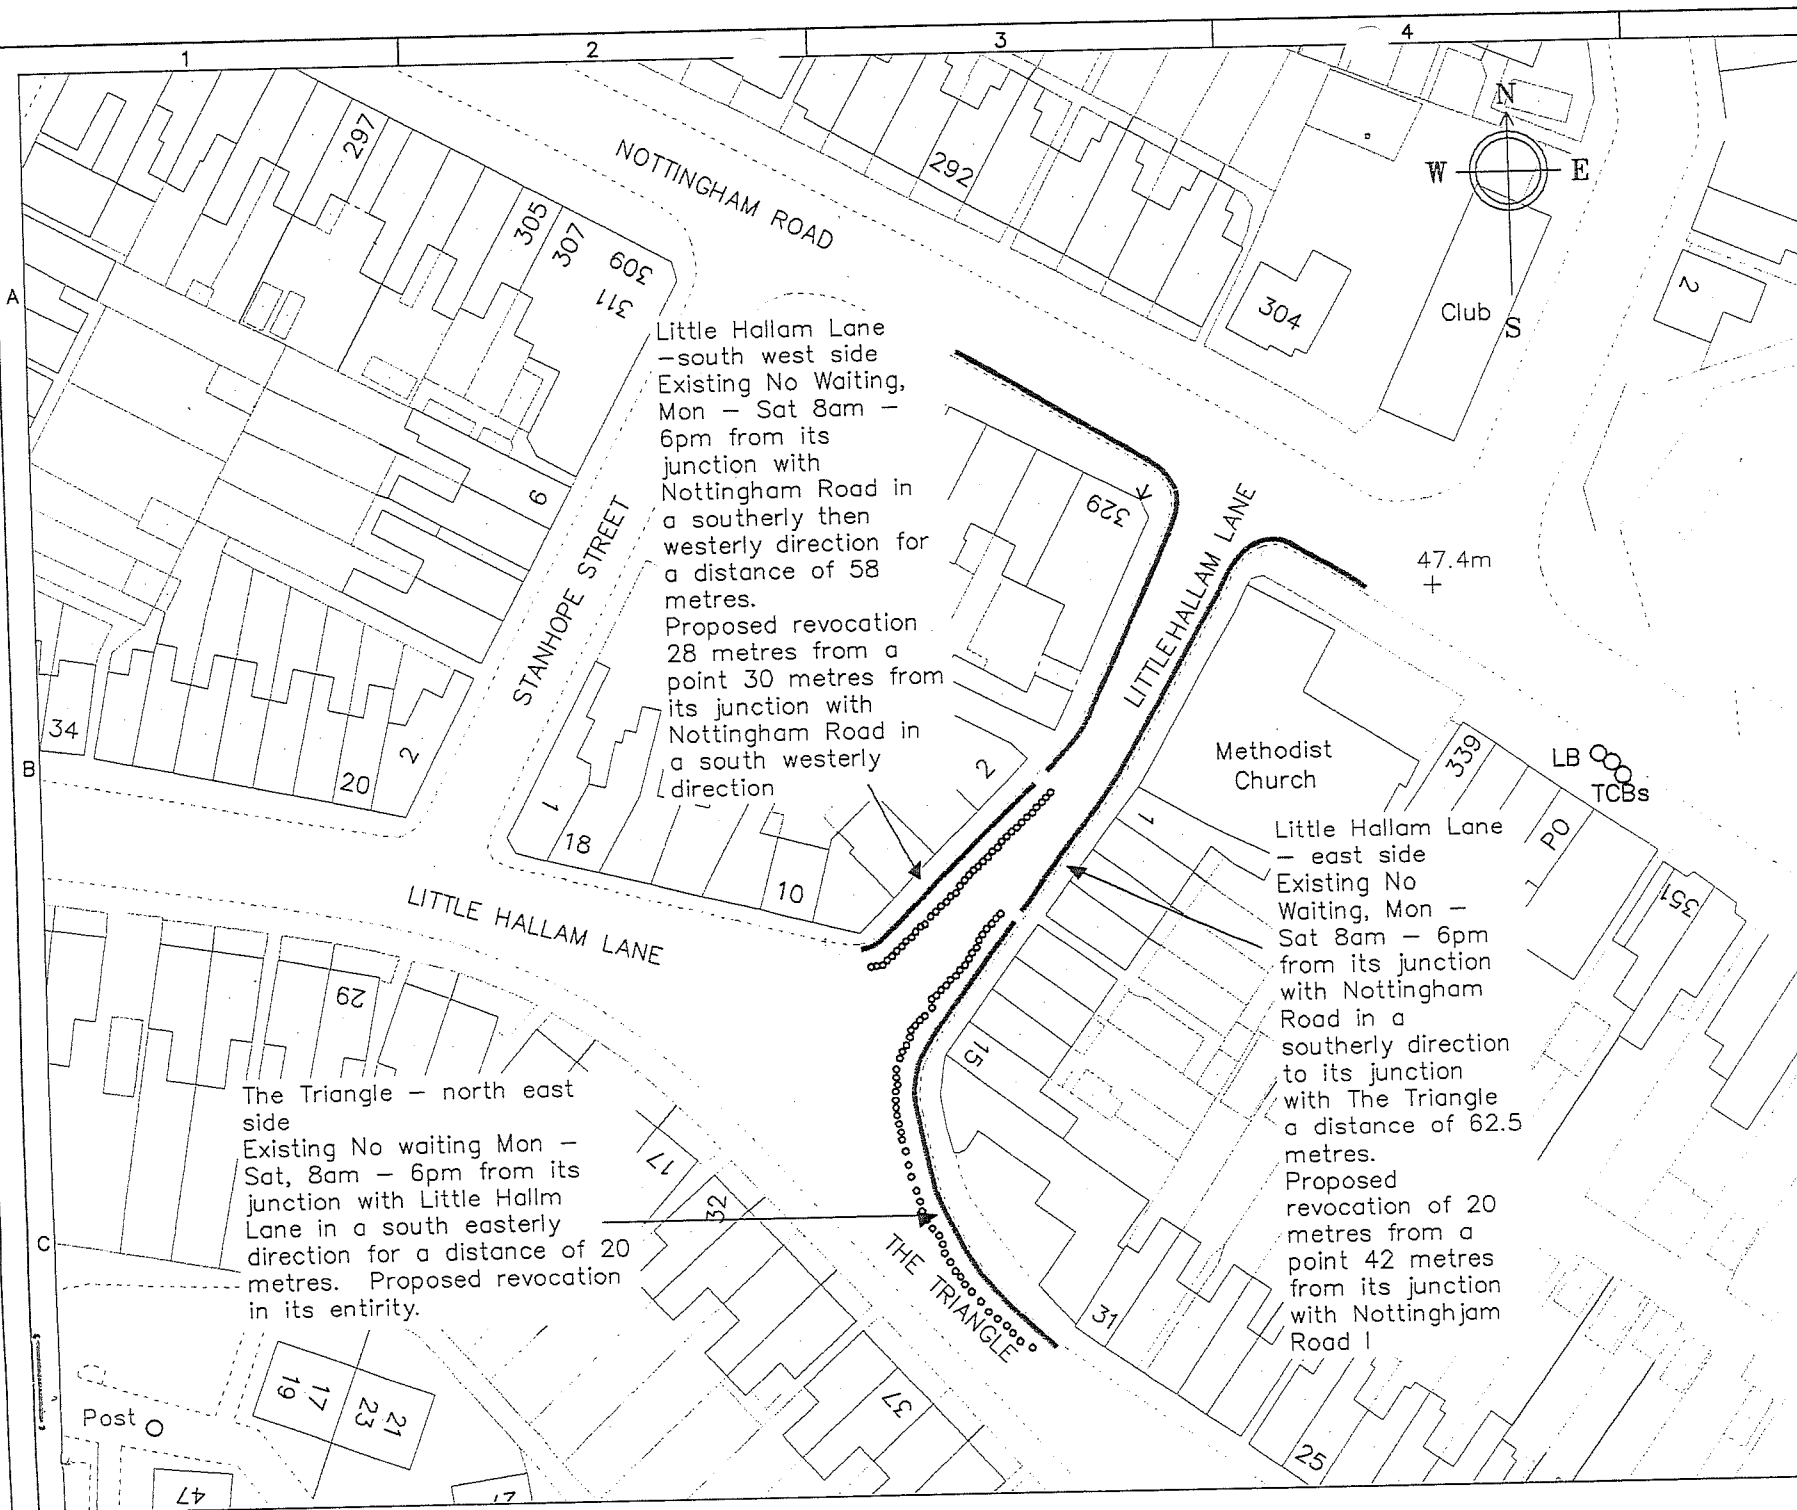 1
2
3
4
A
B
C
N
W
E
S
NOTTINGHAM ROAD
297
305
307
309
311
292
304
Club
2
Little Hallam Lane
–south west side
Existing No Waiting,
Mon – Sat 8am –
6pm from its
junction with
Nottingham Road in
a southerly then
westerly direction for
a distance of 58
metres.
Proposed revocation
28 metres from a
point 30 metres from
its junction with
Nottingham Road in
a south westerly
direction
329
9
STANHOPE STREET
LITTLEHALLAM LANE
47.4m
34
20
2
1
18
10
2
Methodist
Church
1
339
LB
TCBs
PO
351
LITTLE HALLAM LANE
29
15
Little Hallam Lane
– east side
Existing No
Waiting, Mon –
Sat 8am – 6pm
from its junction
with Nottingham
Road in a
southerly direction
to its junction
with The Triangle
a distance of 62.5
metres.
Proposed
revocation of 20
metres from a
point 42 metres
from its junction
with Nottinghjam
Road I
The Triangle – north east
side
Existing No waiting Mon –
Sat, 8am – 6pm from its
junction with Little Hallm
Lane in a south easterly
direction for a distance of 20
metres. Proposed revocation
in its entirity.
17
32
THE TRIANGLE
31
37
25
19
17
23
21
Post
47